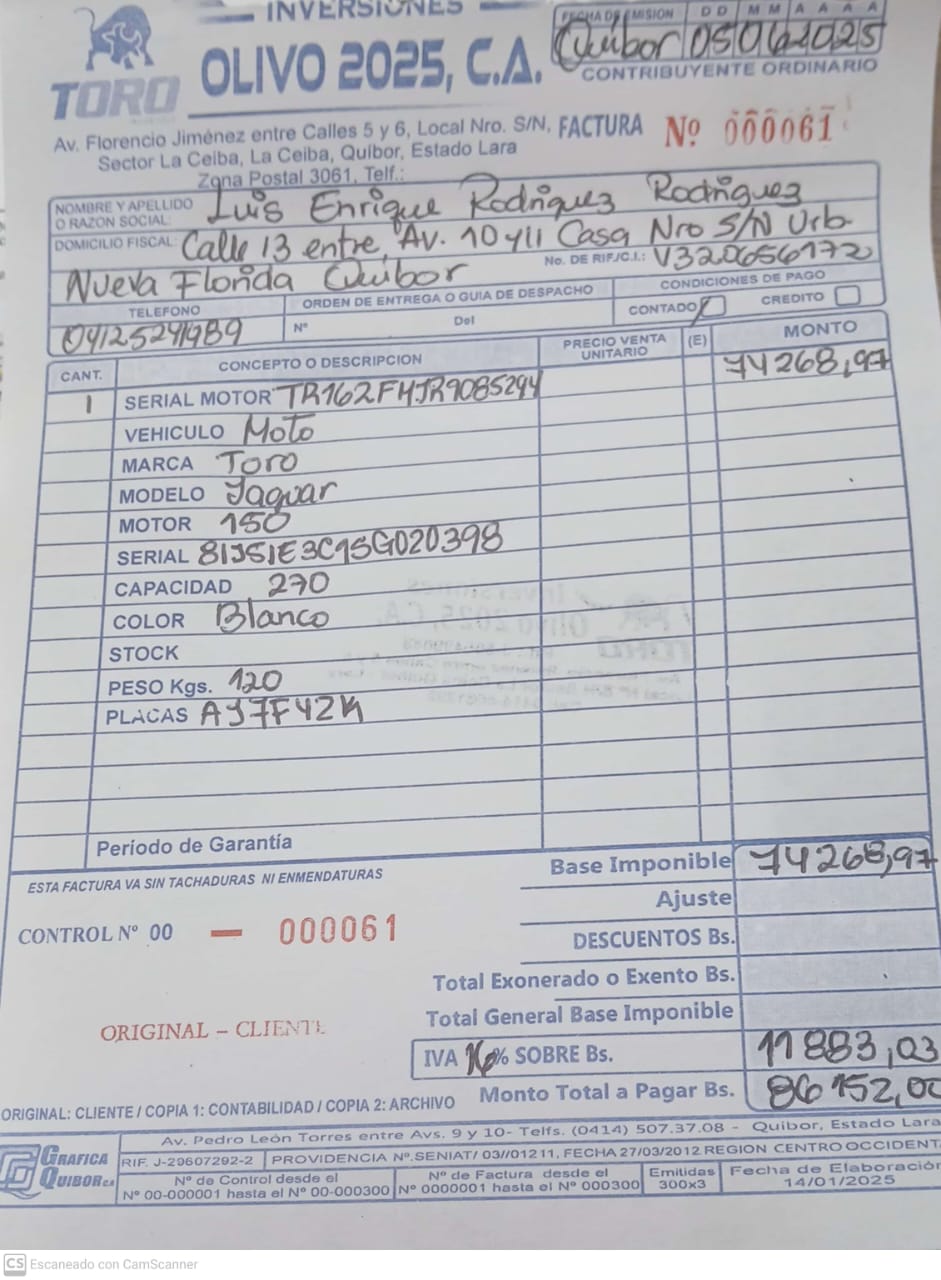 INVERSIONES
TORO
OLIVO 2025, C.A.
FECHA DE EMISION D D M M A A A A
Quibor 05062025
CONTRIBUYENTE ORDINARIO
Av. Florencio Jiménez entre Calles 5 y 6, Local Nro. S/N,
Sector La Ceiba, La Ceiba, Quíbor, Estado Lara
Zona Postal 3061, Telf.:
FACTURA Nº 000061
NOMBRE Y APELLIDO O RAZON SOCIAL: Luis Enrique Rodriguez Rodriguez
DOMICILIO FISCAL: Calle 13 entre Av. 10 y 11 Casa Nro S/N Urb.
Nueva Florida Quibor No. DE RIF/C.I.: V320656172
TELEFONO ORDEN DE ENTREGA O GUIA DE DESPACHO CONDICIONES DE PAGO
04125241989 Nº Del CONTADO CREDITO
CANT. CONCEPTO O DESCRIPCION PRECIO VENTA UNITARIO (E) MONTO
1 SERIAL MOTOR TR162FMJR9085294 74268,97
VEHICULO Moto
MARCA Toro
MODELO Jaguar
MOTOR 150
SERIAL 81JS1E3C1SG020398
CAPACIDAD 270
COLOR Blanco
STOCK
PESO Kgs. 120
PLACAS AJ7F42K
Período de Garantía
ESTA FACTURA VA SIN TACHADURAS NI ENMENDATURAS
Base Imponible 74268,97
Ajuste
CONTROL Nº 00 – 000061
DESCUENTOS Bs.
Total Exonerado o Exento Bs.
Total General Base Imponible
ORIGINAL – CLIENTE
IVA 16% SOBRE Bs. 11883,03
Monto Total a Pagar Bs. 86152,00
ORIGINAL: CLIENTE / COPIA 1: CONTABILIDAD / COPIA 2: ARCHIVO
GRAFICA QUIBOR C.A
Av. Pedro León Torres entre Avs. 9 y 10- Telfs. (0414) 507.37.08 - Quibor, Estado Lara
RIF. J-29607292-2 PROVIDENCIA Nº.SENIAT/ 03//01211, FECHA 27/03/2012 REGION CENTRO OCCIDENT
Nº de Control desde el Nº 00-000001 hasta el Nº 00-000300
Nº de Factura desde el Nº 0000001 hasta el Nº 000300
Emitidas 300x3
Fecha de Elaboración 14/01/2025
CS Escaneado con CamScanner